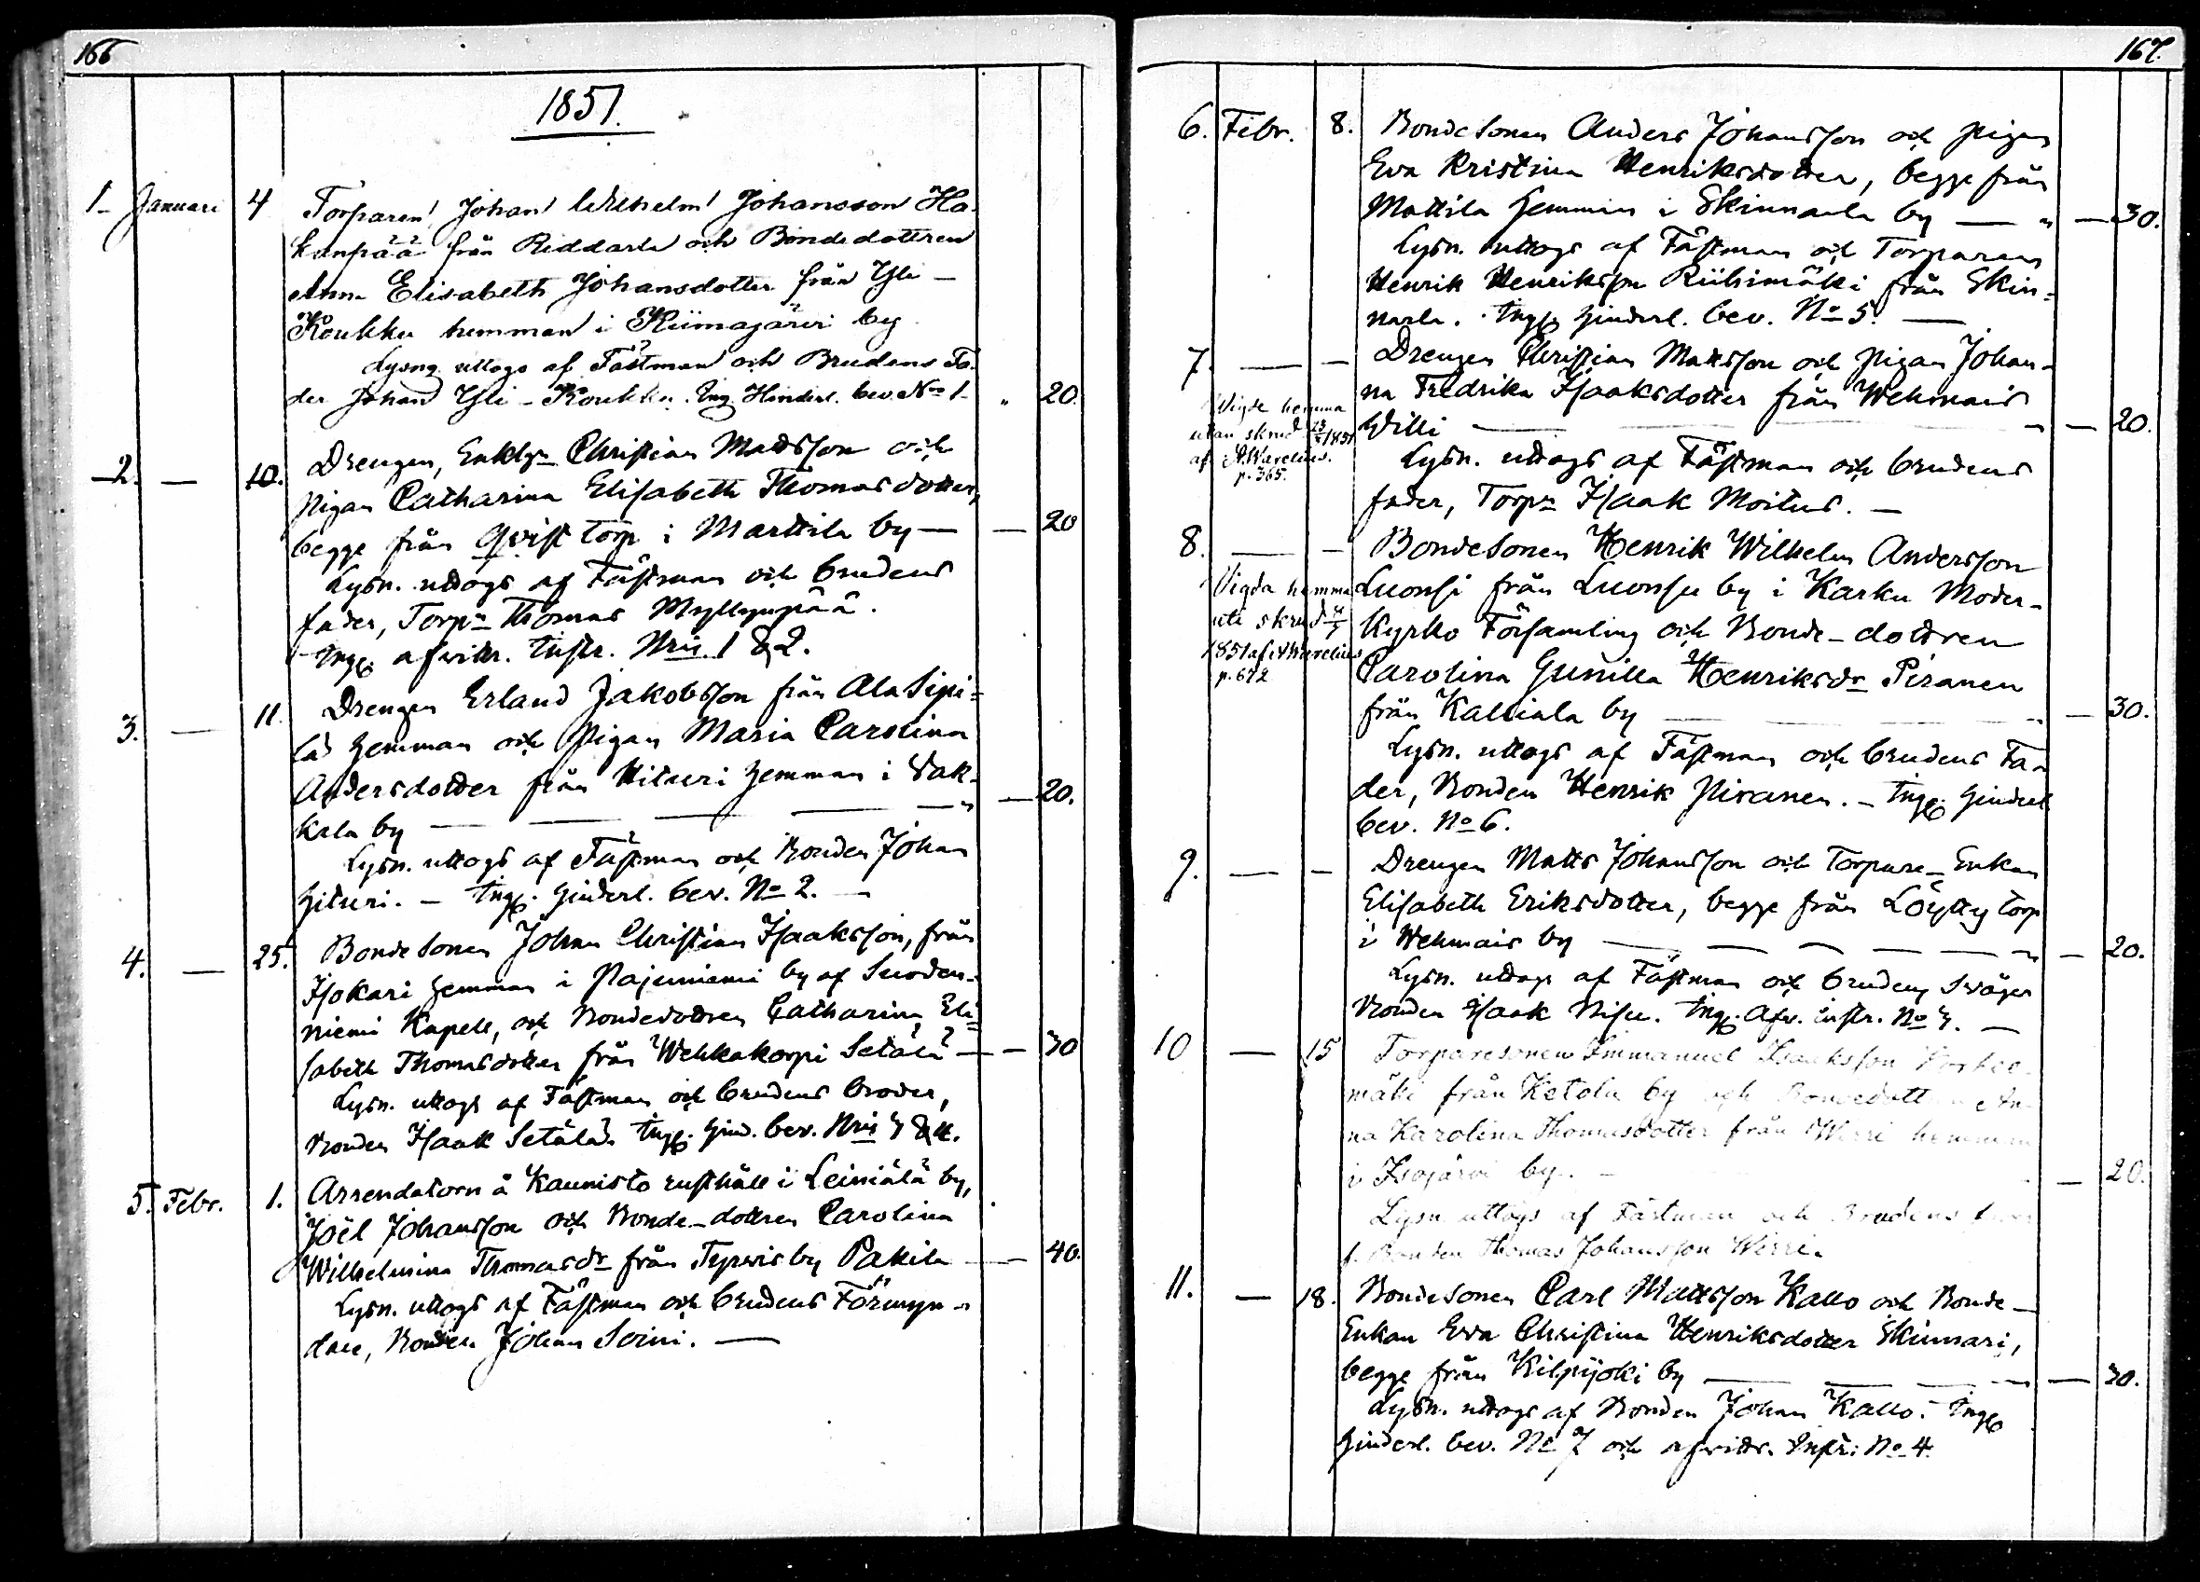 166
1851.
1. Januari 4 Torparen Johan Wilhelm Johansson Ha-
kanpää från Riddarla och Bondedottren
Anna Elisabeth Johansdotter från Yli-
Koukku hemman i Kiimajärvi by
Lysng uttogs af Fästman och Brudens Fa-
der Johan Yli-Koukku. Ing. Hinderl. bev. No 1- " 20.
2. — 10. Drengen, Enklgn Christian Mattsson och
pigan Catharina Elisabeth Thomasdotter,
begge från Qvist torp i Marttila by — — 20
Lysn. uttogs af Fästman och brudens
fader, Torpn Thomas Myllynpää.
Ingg. afwittr. Instr. Nris 1 & 2.
3. — 11. Drengen Erland Jakobsson från Ala Sipi-
lä hemman och pigan Maria Carolina
Andersdotter från Hituri hemman i Wak-
kala by — — — — " — 20.
Lysn. uttogs af Fästman och Bonden Johan
Hituri. — Ingg. Hinderl. bev. No 2. —
4. — 25. Bondesonen Johan Christian Isaaksson, från
Isokari hemman i Pajuniemi by af Suoden-
niemi Kapell, och Bondedottren Catharina Eli-
sabeth Thomasdotter från Wehkakorpi Setälä — — 30
Lysn. uttogs af Fästman och brudens broder,
Bonden Isaak Setälä. Ingg. Hind. bev. Nris 3 & 4.
5. Febr. 1. Arrendatorn å Kaunisto rusthåll i Leiniälä by,
Joël Johansson och Bonde-dottren Carolina
Wilhelmina Thomasdr från Tyrwis by Pakila — 40.
Lysn. uttogs af Fästman och brudens Förmyn-
dare, Bonden Johan Soini. —
167.
6. Febr. 8. Bondesonen Anders Johansson och pigan
Eva Kristina Henriksdotter, begge från
Mattila hemman i Skinnarla by — " — 30.
Lysn. uttogs af Fästman och Torparen
Henrik Henriksson Riihimäki från Skin-
narla. Ingg. Hinderl. bev. No 5. —
7. — — Drengen Christian Mattsson och pigan Johan-
na Fredrika Isaaksdotter från Wehmais
Willi — " — 20.
Vigde hemma
utan skrud 1851
af A. Warelius.
p. 365.
Lysn. uttogs af Fästman och brudens
fader, Torpn Isaak Moitus. —
8. — — Bondesonen Henrik Wilhelm Andersson
Luonsi från Luonsu by i Karku Moder-
Kyrko Församling och Bonde-dottren
Carolina Gunilla Henriksdr Piranen
från Kalliala by — " — 30.
Vigda hemma
ute skrud
1851 af A Warelius
p. 672
Lysn. uttogs af Fästman och brudens Fa-
der, Bonden Henrik Piranen. — Ingg. Hinderl
bev. No 6.
9. — — Drengen Matts Johansson och Torpare-Enkan
Elisabeth Eriksdotter, begge från Löytty torp
i Wehmais by — — — — — " — 20.
Lysn. uttogs af Fästman och brudens Svåger
Bonden Isaak Nisu. Ingg. Afw. instr. No 3. —
10 — 15 Torparesonen Immanuel Isaaksson
mäki från Ketola by och An-
na Karolina Thomasdotter från Wirri hemman
i Isojärvi by. — — 20.
Lysn uttogs af Fästman och Brudens
f. Bonden Thomas Johansson Wirri.
11. — 18. Bondesonen Carl Mattsson Kallo och Bonde-
Enkan Eva Christina Henriksdotter Skinnari,
begge från Kilpijoki by — — — — 30.
Lysn. uttogs af Bonden Johan Kallo. Ingg
Hinderl. bev. No 7 och afwittr. Instr: No 4.